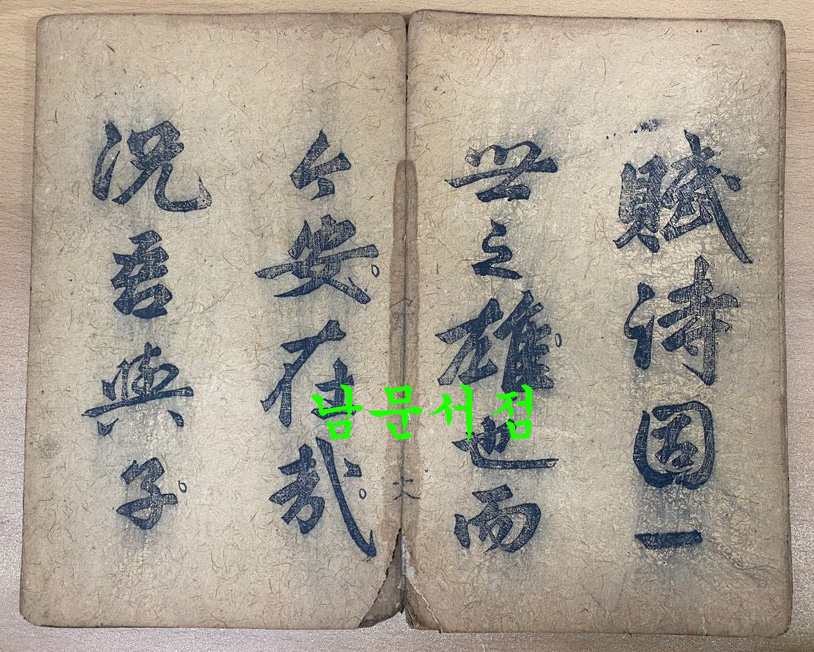 賦詩固一
世之雄也而
今安在哉
況吾與子
남문서점
六